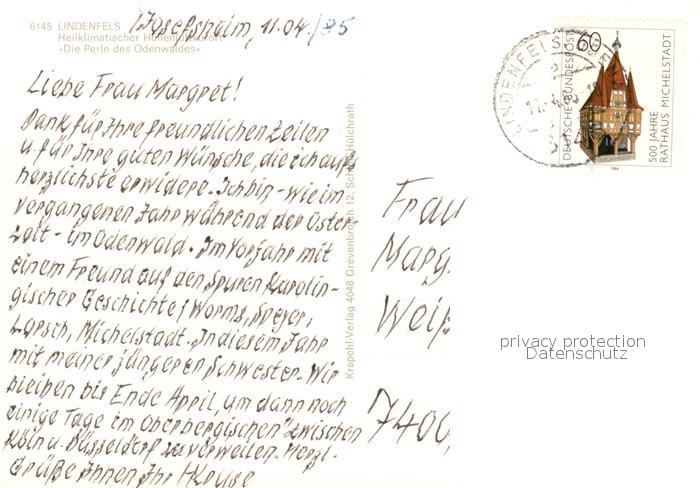 6145 LINDENFELS
Heilklimatischer Höhenluftkurort
»Die Perle des Odenwaldes«
11.04./85
Liebe Frau Margret!
Dank für Ihre freundlichen Zeilen
u. für Ihre guten Wünsche, die ich aufs
herzlichste erwidere. Ich bin - wie im
vergangenen Jahr während der Oster-
zeit - im Odenwald. Im Vorjahr mit
einem Freund auf den Spuren karolin-
gischer Geschichte / Worms, Speyer,
Lorsch, Michelstadt. In diesem Jahr
mit meiner jüngeren Schwester. Wir
bleiben bis Ende April, um dann noch
einige Tage im Oberbergischen" zwischen
Köln u. Düsseldorf zu verweilen. Herzl.
Grüße Ihnen Ihr HKruse
Krapohl-Verlag 4048 Grevenbroich 12, Schloß Hülchrath
LINDENFELS
60
DEUTSCHE BUNDESPOST
500 JAHRE
RATHAUS MICHELSTADT
1984
Frau
Marg
Weiß
7400
privacy protection
Datenschutz